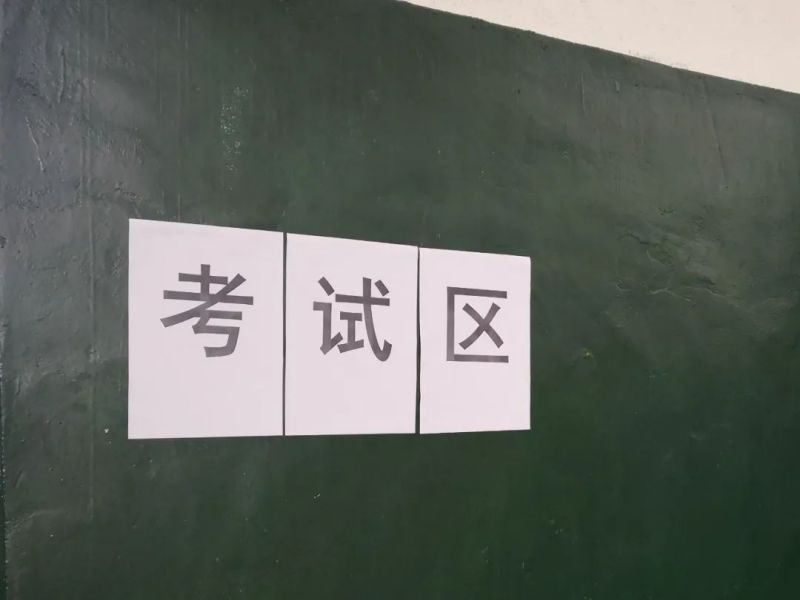 考试区